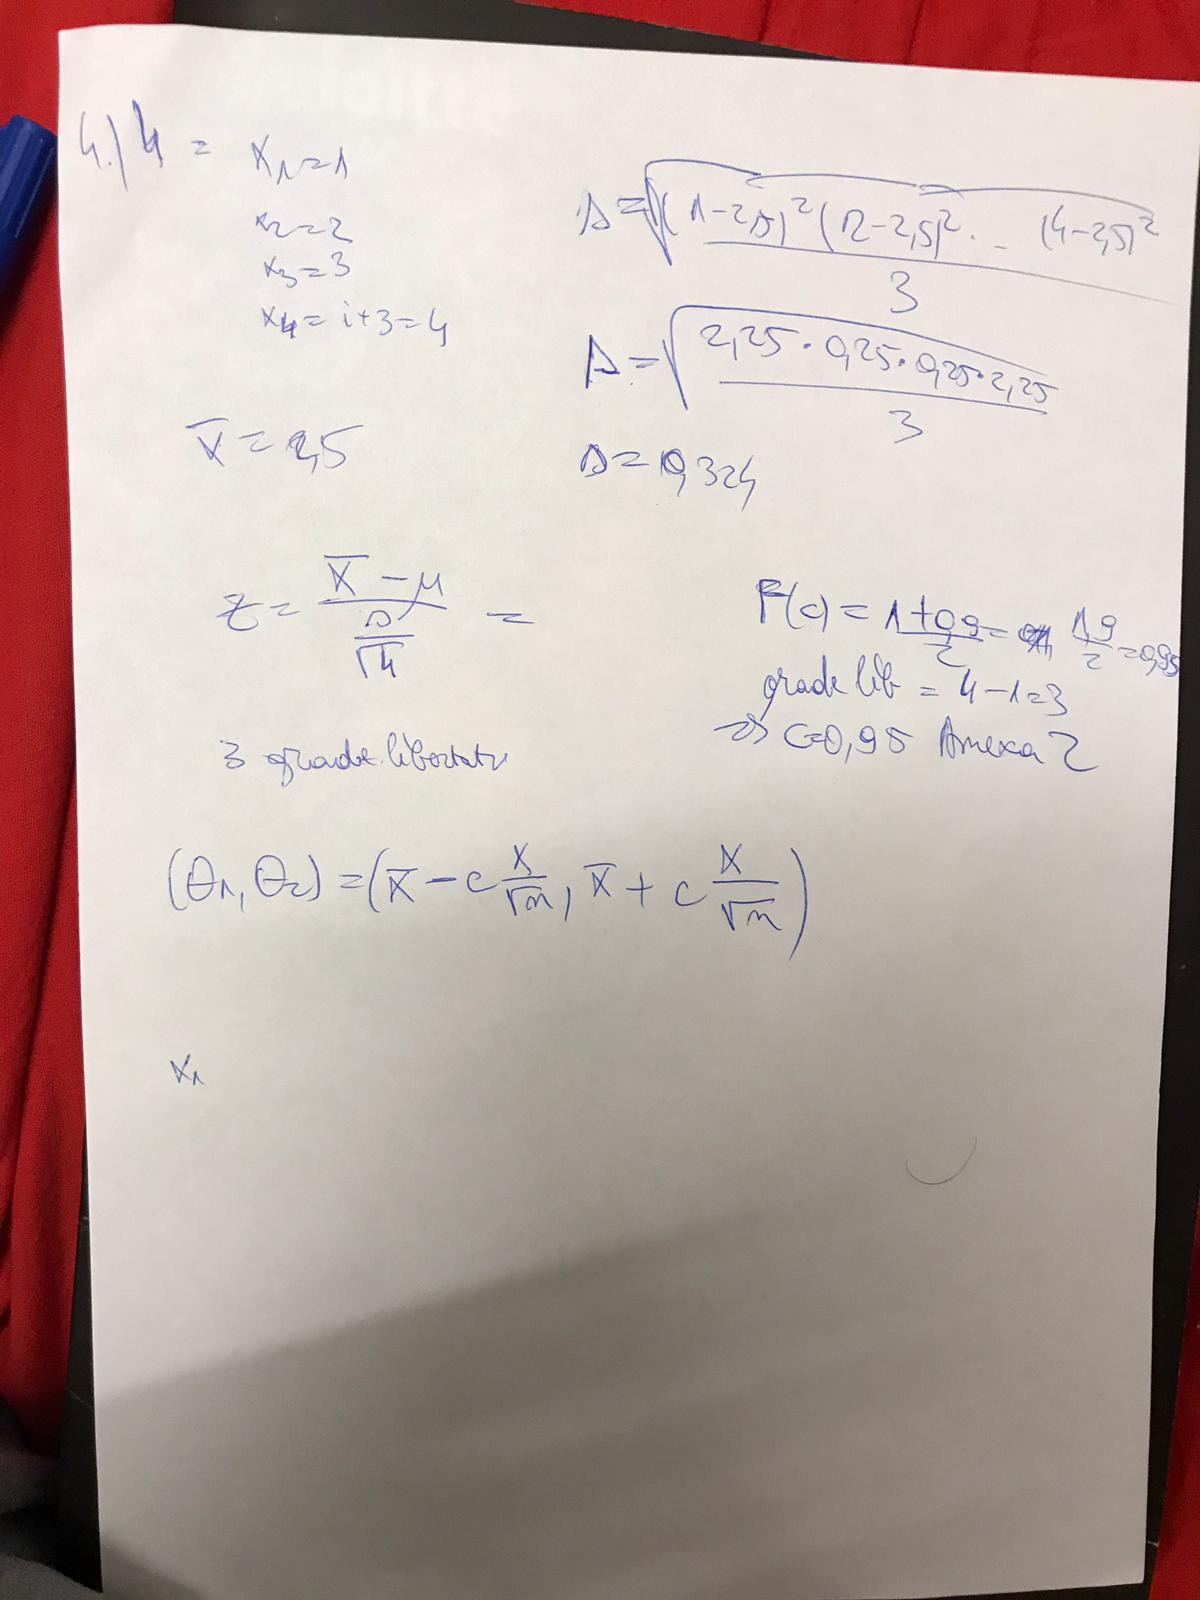 4.) 4 = x₁=1
x₂=2
x₃=3
x₄= i+3=4
x̄ = 2,5
s = √((1-2,5)²(2-2,5)² ... (4-2,5)² / 3)
s = √(2,25 · 0,25 · 0,25 · 2,25 / 3)
s = 0,324
z = (x̄ - μ) / (s/√4) =
3 grade libertate
F(c) = (1+0,9)/2 = 1,9/2 = 0,95
grade lib = 4-1=3
=> c=0,95 Anexa 2
(θ₁, θ₂) = (x̄ - c x/√n, x̄ + c x/√n)
x₁